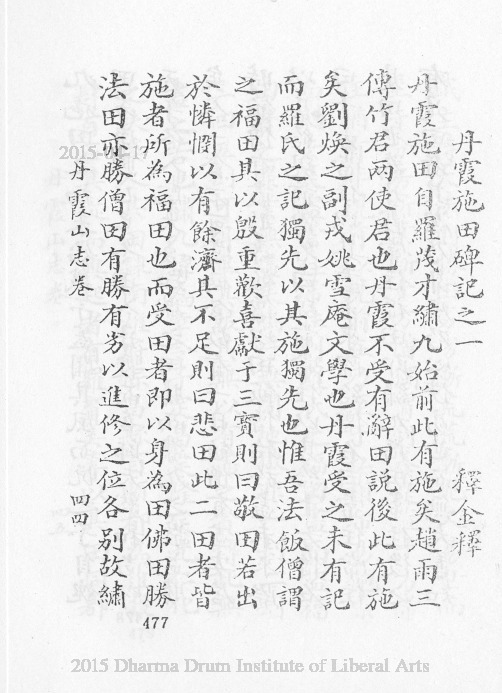 丹霞施田碑記之一
釋金釋
丹霞施田自羅茂才繡九始前此有施矣趙雨三
傅竹君两使君也丹霞不受有辭田説後此有施
矣劉煥之副戎姚雪庵文學也丹霞受之未有記
而羅氏之記獨先以其施獨先也惟吾法飯僧謂
之福田其以殷重歡喜獻于三寳則曰敬田若出
於憐憫以有餘濟其不足則曰悲田此二田者皆
施者所為福田也而受田者即以身為田佛田勝
法田亦勝僧田有勝有劣以進修之位各别故繡
丹霞山志卷
四四
477
2015-0 -17
2015 Dharma Drum Institute of Liberal Arts